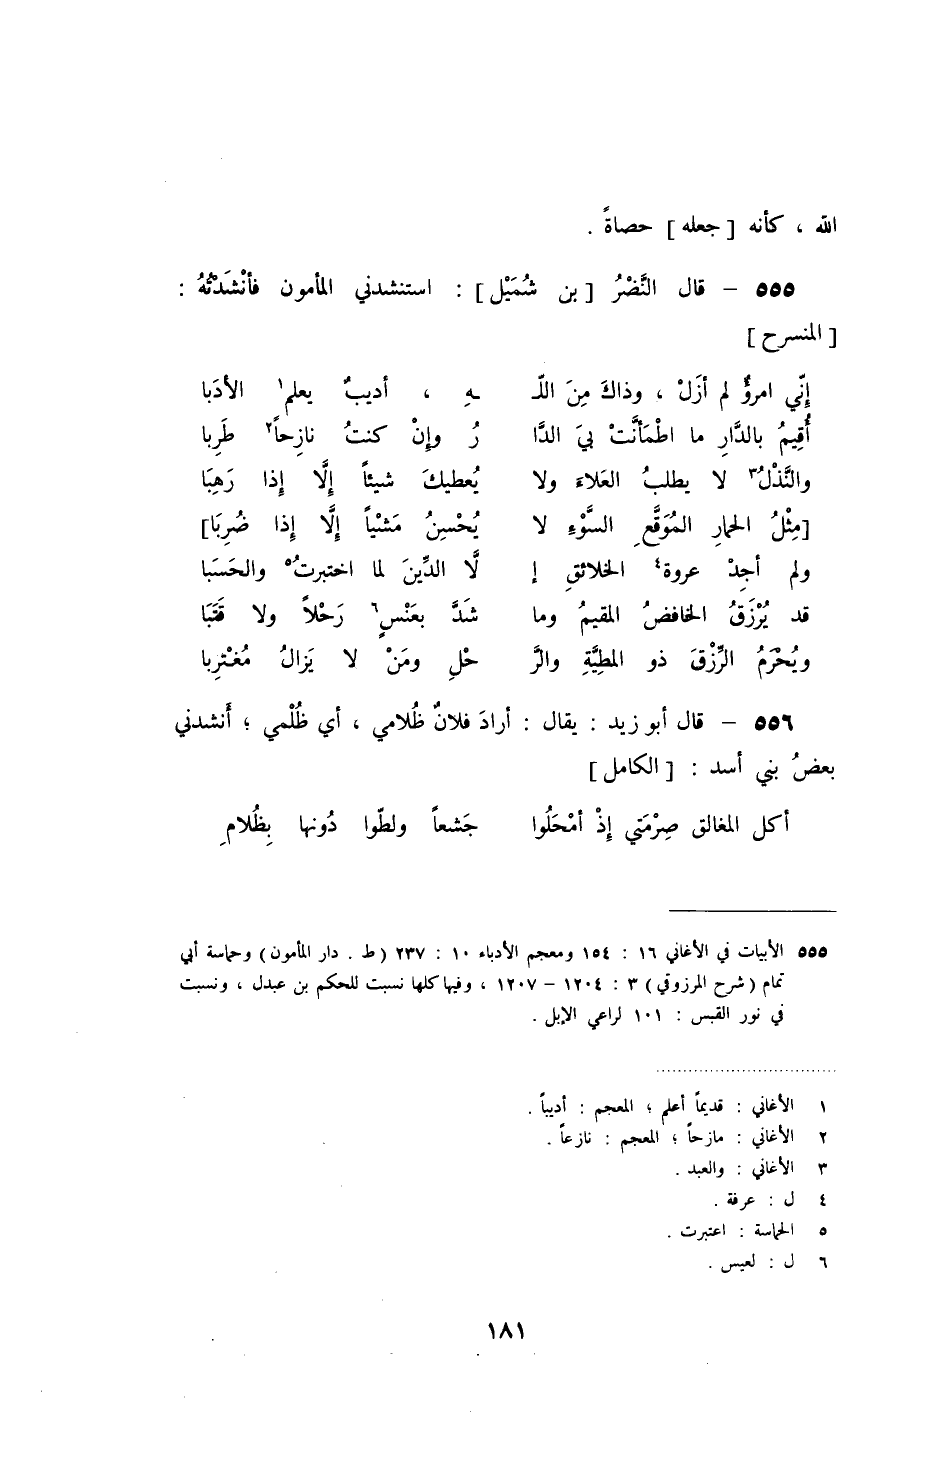 الله ، كأنه [ جعله ] حصاةً .
٥٥٥ – قال النَّضْرُ [ بن شُمَيْل ] : استنشدني المأمون فأنْشَدْتُهُ :
[ المنسرح ]
إنّي امرؤٌ لم أزَلْ ، وذاكَ مِنَ اللّـ ـهِ ، أديبٌ يعلم١ الأدَبا
أُقيمُ بالدَّارِ ما اطْمَأنَّتْ بيَ الدَّا رُ وإنْ كنتُ نازِحاً٢ طَرِبا
والنَّذْلُ٣ لا يطلبُ العَلاءَ ولا يُعطيكَ شيئاً إلَّا إذا رَهِبَا
[مِثْلُ الحمارِ المُوَقَّعِ السَّوْءِ لا يُحْسِنُ مَشْياً إلَّا إذا ضُرِبَا]
ولم أجِدْ عروة٤ الخلائقِ إ لَّا الدِّينَ لما اختبرتُ٥ والحَسَبا
قد يُرْزَقُ الخافضُ المقيمُ وما شَدَّ بعَنْسٍ٦ رَحْلاً ولا قَتَبَا
ويُحْرَمُ الرِّزْقَ ذو المطِيَّةِ والرَّ حْلِ ومَنْ لا يَزالُ مُغْتَرِبا
٥٥٦ – قال أبو زيد : يقال : أرادَ فلانٌ ظُلامي ، أي ظُلْمي ؛ أَنشدني
بعضُ بني أسد : [ الكامل ]
أكل المغالق صِرْمَتي إذْ أمْحَلُوا جَشعاً ولطّوا دُونها بِظُلامِ
٥٥٥ الأبيات في الأغاني ١٦ : ١٥٤ ومعجم الأدباء ١٠ : ٢٣٧ ( ط . دار المأمون ) وحماسة أبي
تمام ( شرح المرزوقي ) ٣ : ١٢٠٤ – ١٢٠٧ ، وفيها كلها نسبت للحكم بن عبدل ، ونسبت
في نور القبس : ١٠١ لراعي الإبل .
١ الأغاني : قديماً أعلم ؛ المعجم : أديباً .
٢ الأغاني : مازحاً ؛ المعجم : نازعاً .
٣ الأغاني : والعبد .
٤ ل : عرفة .
٥ الحماسة : اعتبرت .
٦ ل : لعيس .
١٨١